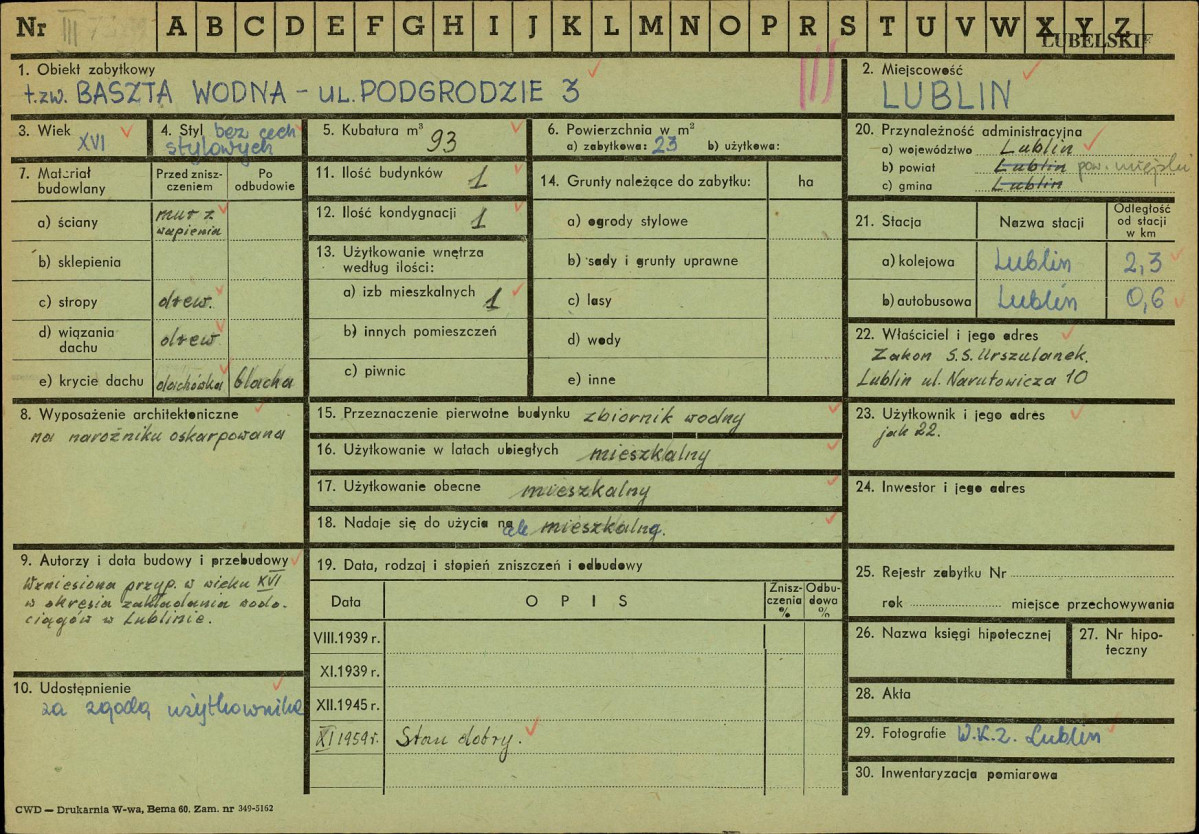 Nr III A B C D E F G H I J K L M N O P R S T U V W X Y Z
LUBELSKIE
1. Obiekt zabytkowy
t.zw. BASZTA WODNA - UL. PODGRODZIE 3
III
2. Miejscowość
LUBLIN
3. Wiek
XVI
4. Styl bez cech
stylowych
5. Kubatura m³
93
6. Powierzchnia w m²
a) zabytkowa: 23 b) użytkowa:
7. Materiał
budowlany
Przed znisz-
czeniem
Po
odbudowie
a) ściany
mur z
wapienia
b) sklepienia
c) stropy drew.
d) wiązania
dachu
drew
e) krycie dachu dachówka blacha
8. Wyposażenie architektoniczne
na narożniku oskarpowana
9. Autorzy i data budowy i przebudowy
Wzniesiona przyp. w wieku XVI
w okresie zakładania wodo-
ciągów w Lublinie.
10. Udostępnienie
za zgodą użytkownika
11. Ilość budynków 1
12. Ilość kondygnacji 1
13. Użytkowanie wnętrza
według ilości:
a) izb mieszkalnych 1
b) innych pomieszczeń
c) piwnic
14. Grunty należące do zabytku: ha
a) ogrody stylowe
b) sady i grunty uprawne
c) lasy
d) wody
e) inne
15. Przeznaczenie pierwotne budynku zbiornik wodny
16. Użytkowanie w latach ubiegłych mieszkalny
17. Użytkowanie obecne mieszkalny
18. Nadaje się do użycia na cele mieszkalne.
19. Data, rodzaj i stopień zniszczeń i odbudowy
Data
OPIS
Znisz-
czenia
%
Odbu-
dowa
%
VIII.1939 r.
XI.1939 r.
XII.1945 r.
XI 1959 r. Stan dobry.
20. Przynależność administracyjna
a) województwo Lublin
b) powiat Lublin pow. miejski
c) gmina Lublin
21. Stacja
Nazwa stacji
Odległość
od stacji
w km
a) kolejowa Lublin 2,3
b) autobusowa Lublin 0,6
22. Właściciel i jego adres
Zakon S.S. Urszulanek.
Lublin ul. Narutowicza 10
23. Użytkownik i jego adres
jak 22.
24. Inwestor i jego adres
25. Rejestr zabytku Nr
rok miejsce przechowywania
26. Nazwa księgi hipotecznej
27. Nr hipo-
teczny
28. Akta
29. Fotografie W.K.Z. Lublin
30. Inwentaryzacja pomiarowa
CWD — Drukarnia W-wa, Bema 60. Zam. nr 349-5162